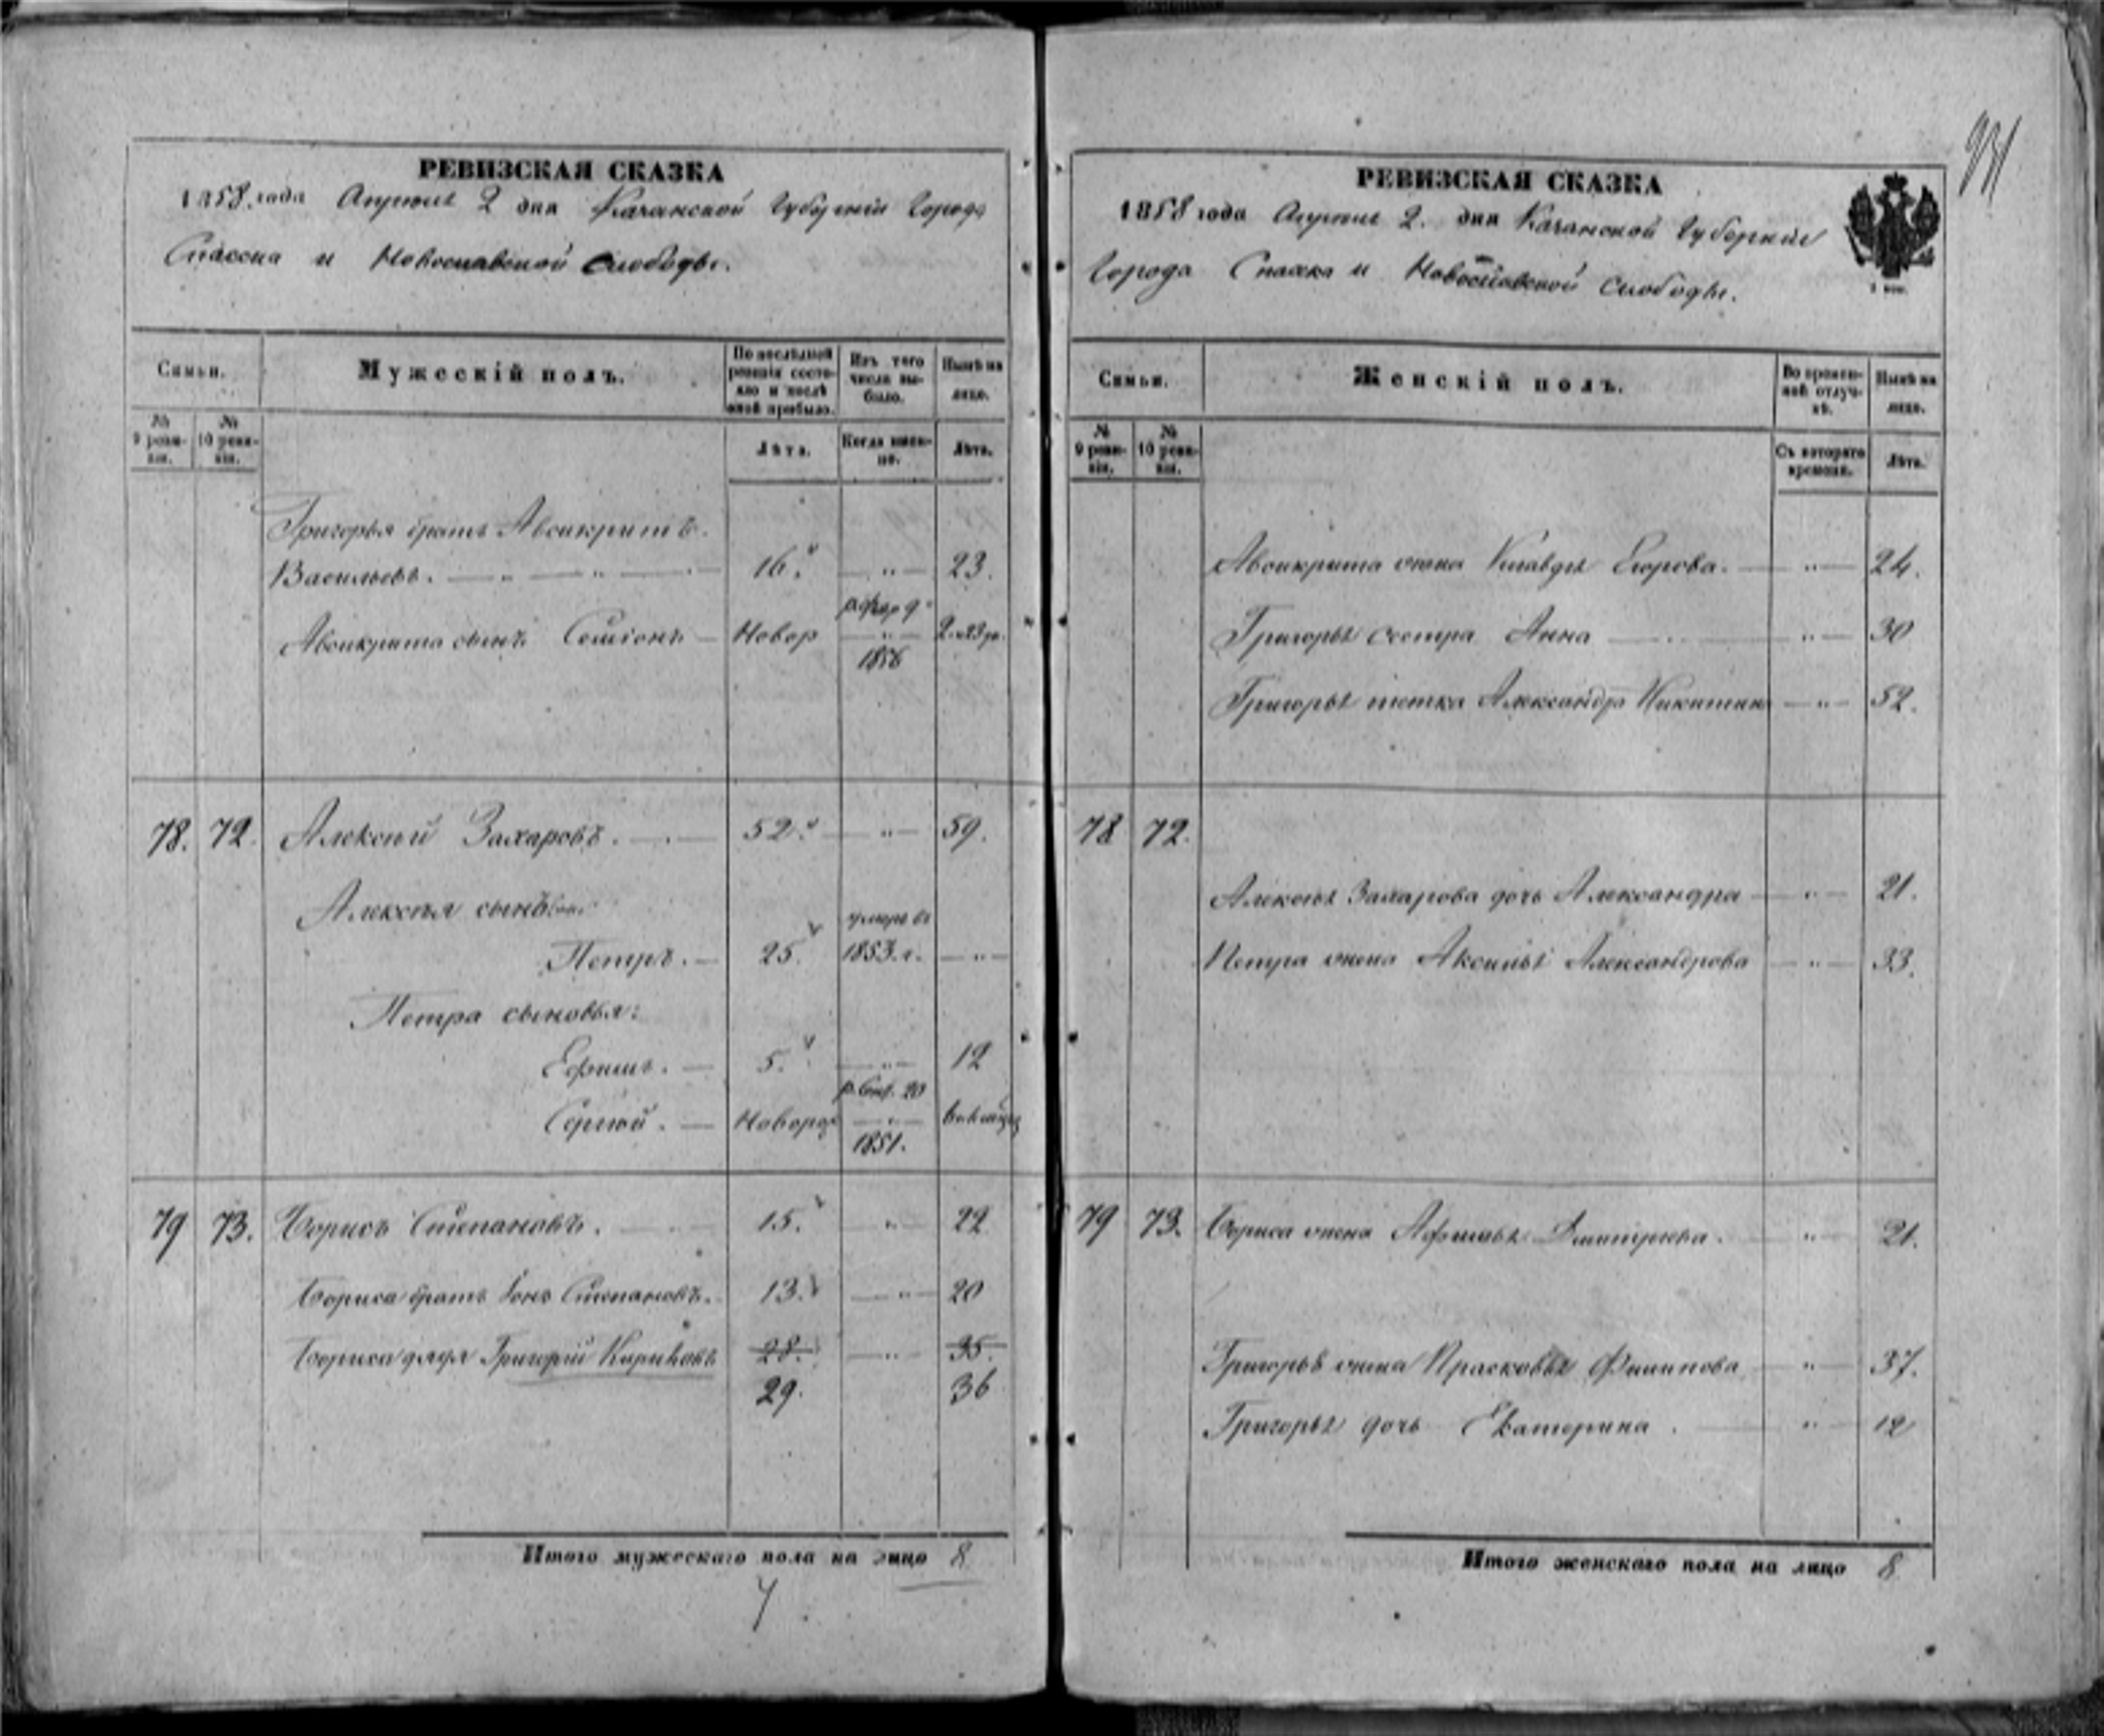 РЕВИЗСКАЯ СКАЗКА
1858 года Апреля 2 дня Казанской Губернии Города
Спасска и Новоспасской Слободы.
Семьи.
Мужескій полъ.
По послѣдней ревизіи состояло и послѣ оной прибыло.
Изъ того числа выбыло.
Нынѣ на лицо.
№ 9 ревизіи.
№ 10 ревизіи.
Лѣта.
Когда именно.
Лѣта.
Григорья братъ Авикритъ
Васильевъ. 16. 23.
р. фев 9
Авикрита сынъ Новор 2
1856
78. 72. Алексѣй Захаровъ. 52. 59.
Алексѣя сыновья
умеръ въ
Петръ. 25. 1853 г.
Петра сыновья:
Ефимъ. 5. 12
р. Сен. 20
Сергѣй. Новорож
1851.
79 73. Борисъ Степановъ. 15. 22
Бориса братъ Степановъ. 13. 20
Бориса дядя Григорій 28. 35.
29. 36
Итого мужескаго пола на лицо 8
РЕВИЗСКАЯ СКАЗКА
1858 года Апреля 2. дня Казанской Губерніи
Города Спасска и Новоспасской слободы.
Семьи.
Женскій полъ.
Во временной отлучкѣ.
Нынѣ на лицо.
№ 9 ревизіи.
№ 10 ревизіи.
Съ котораго времени.
Лѣта.
Авикрита жена Клавдя Егорова. 24.
Григорья сестра Анна 30
Григорья тетка Александра Никитина 52.
78 72.
Алексѣя Захарова дочь Александра 21.
Петра жена Аксинья Александрова 33.
79 73. Бориса жена Афимья Дмитріева. 21.
Григорья жена Прасковья Филипова 37.
Григорья дочь Екатерина. 12
Итого женскаго пола на лицо 8